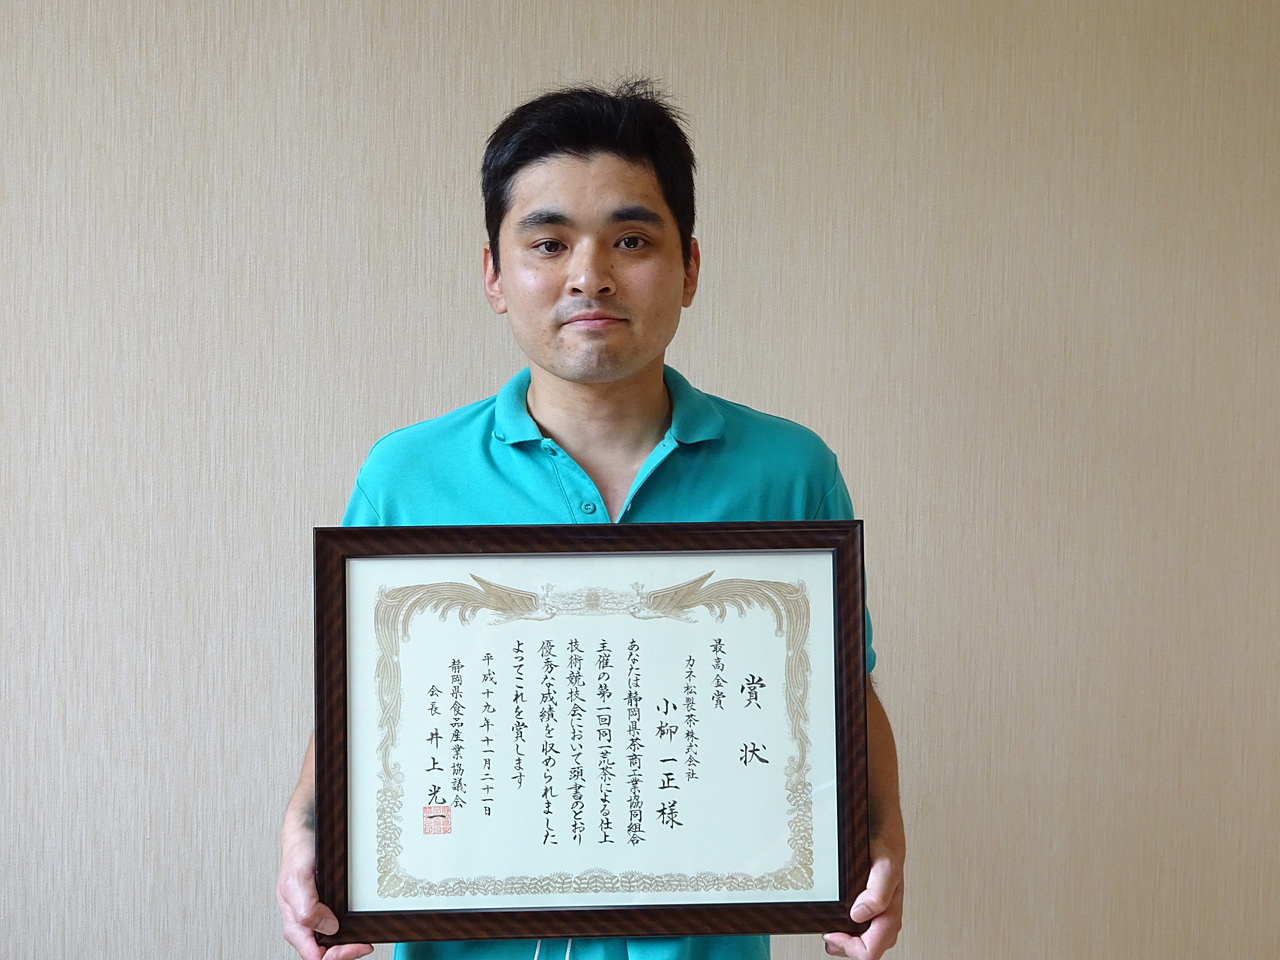 賞状
最高金賞
カネ松製茶株式会社
小柳一正様
あなたは静岡県茶商工業協同組合
主催の第一回同一荒茶による仕上
技術競技会において頭書のとおり
優秀な成績を収められました
よってこれを賞します
平成十九年十一月二十一日
静岡県食品産業協議会
会長 井上光一